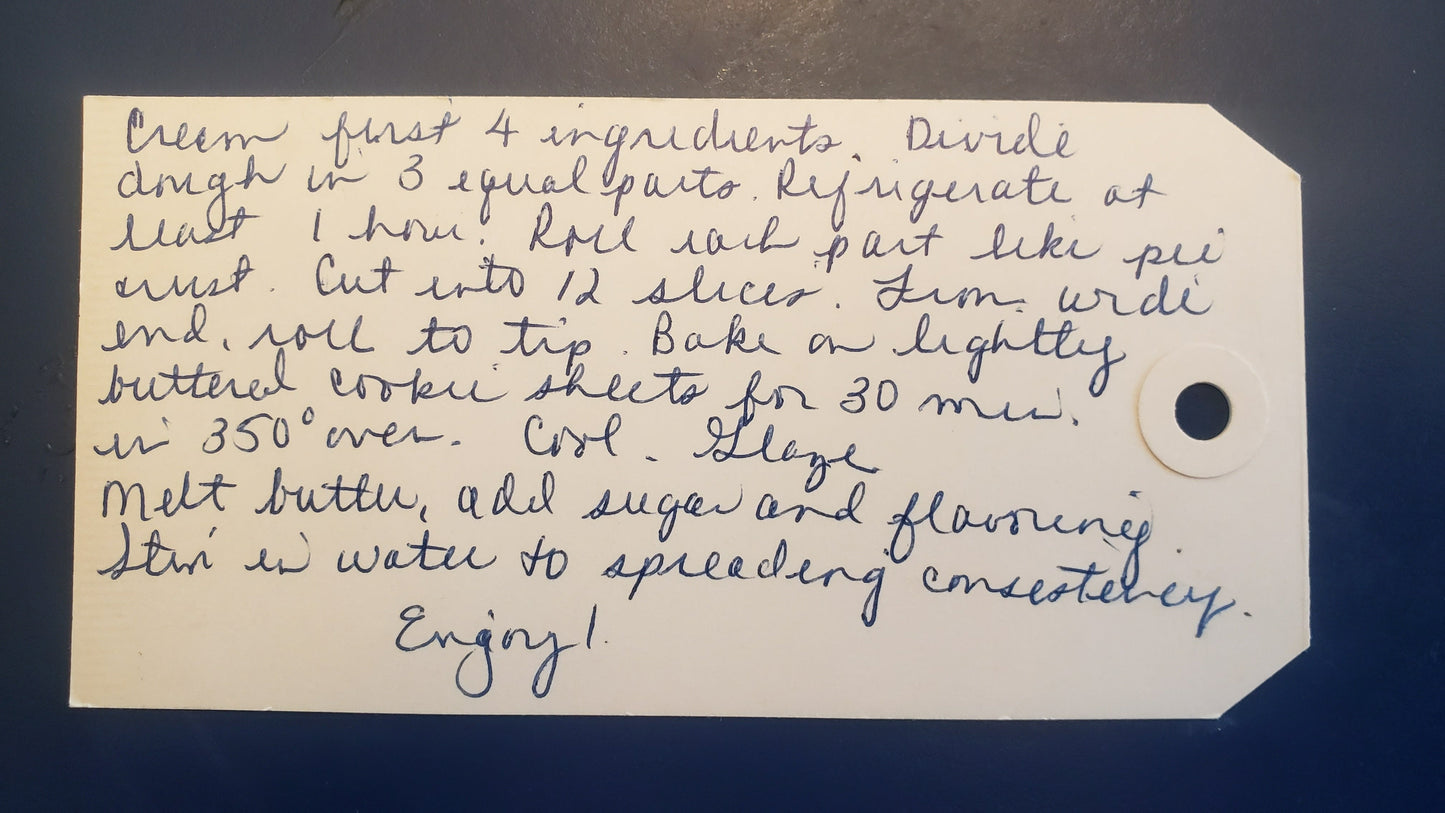 Cream first 4 ingredients. Divide
dough in 3 equal parts. Refrigerate at
least 1 hour. Roll each part like pie
crust. Cut into 12 slices. From wide
end, roll to tip. Bake on lightly
buttered cookie sheets for 30 min.
in 350° oven. Cool. Glaze
Melt butter, add sugar and flavouring.
Stir in water to spreading consistency.
Enjoy!